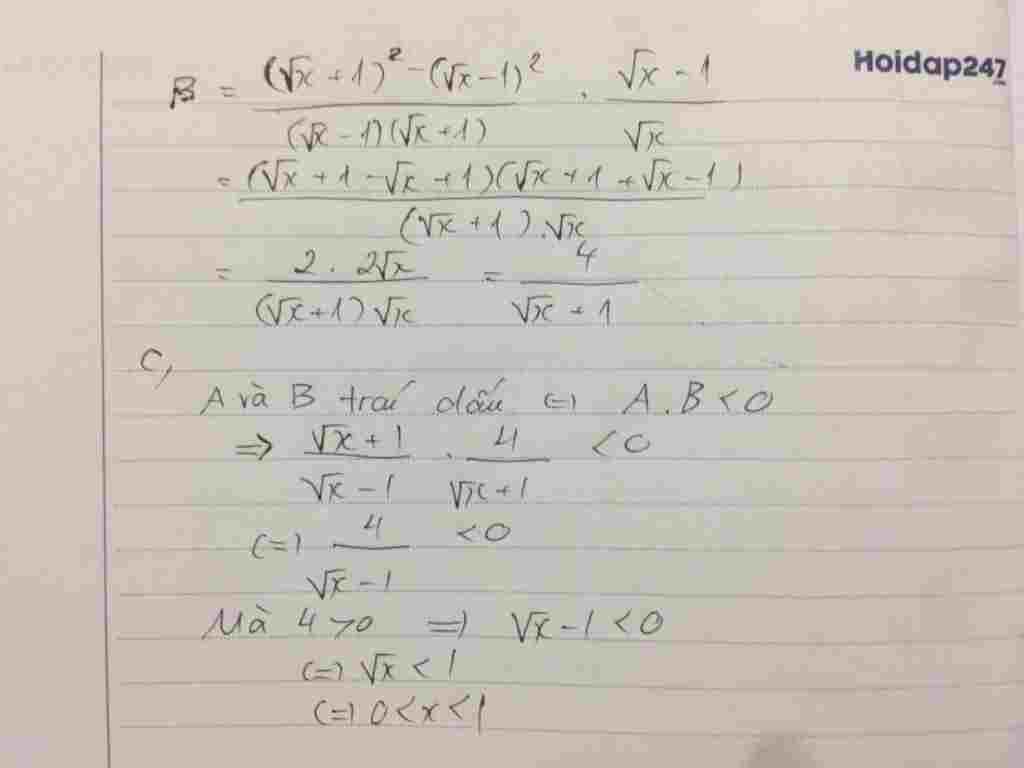 Hoidap247
B = ((√x + 1)² - (√x - 1)²) / ((√x - 1)(√x + 1)) . (√x - 1) / √x
= ((√x + 1 - √x + 1)(√x + 1 + √x - 1)) / ((√x + 1).√x)
= (2 . 2√x) / ((√x + 1)√x) = 4 / (√x + 1)
C,
A và B trái dấu (=) A.B < 0
=> (√x + 1) / (√x - 1) . 4 / (√x + 1) < 0
(=) 4 / (√x - 1) < 0
Mà 4 > 0 =) √x - 1 < 0
(=) √x < 1
(=) 0 < x < 1